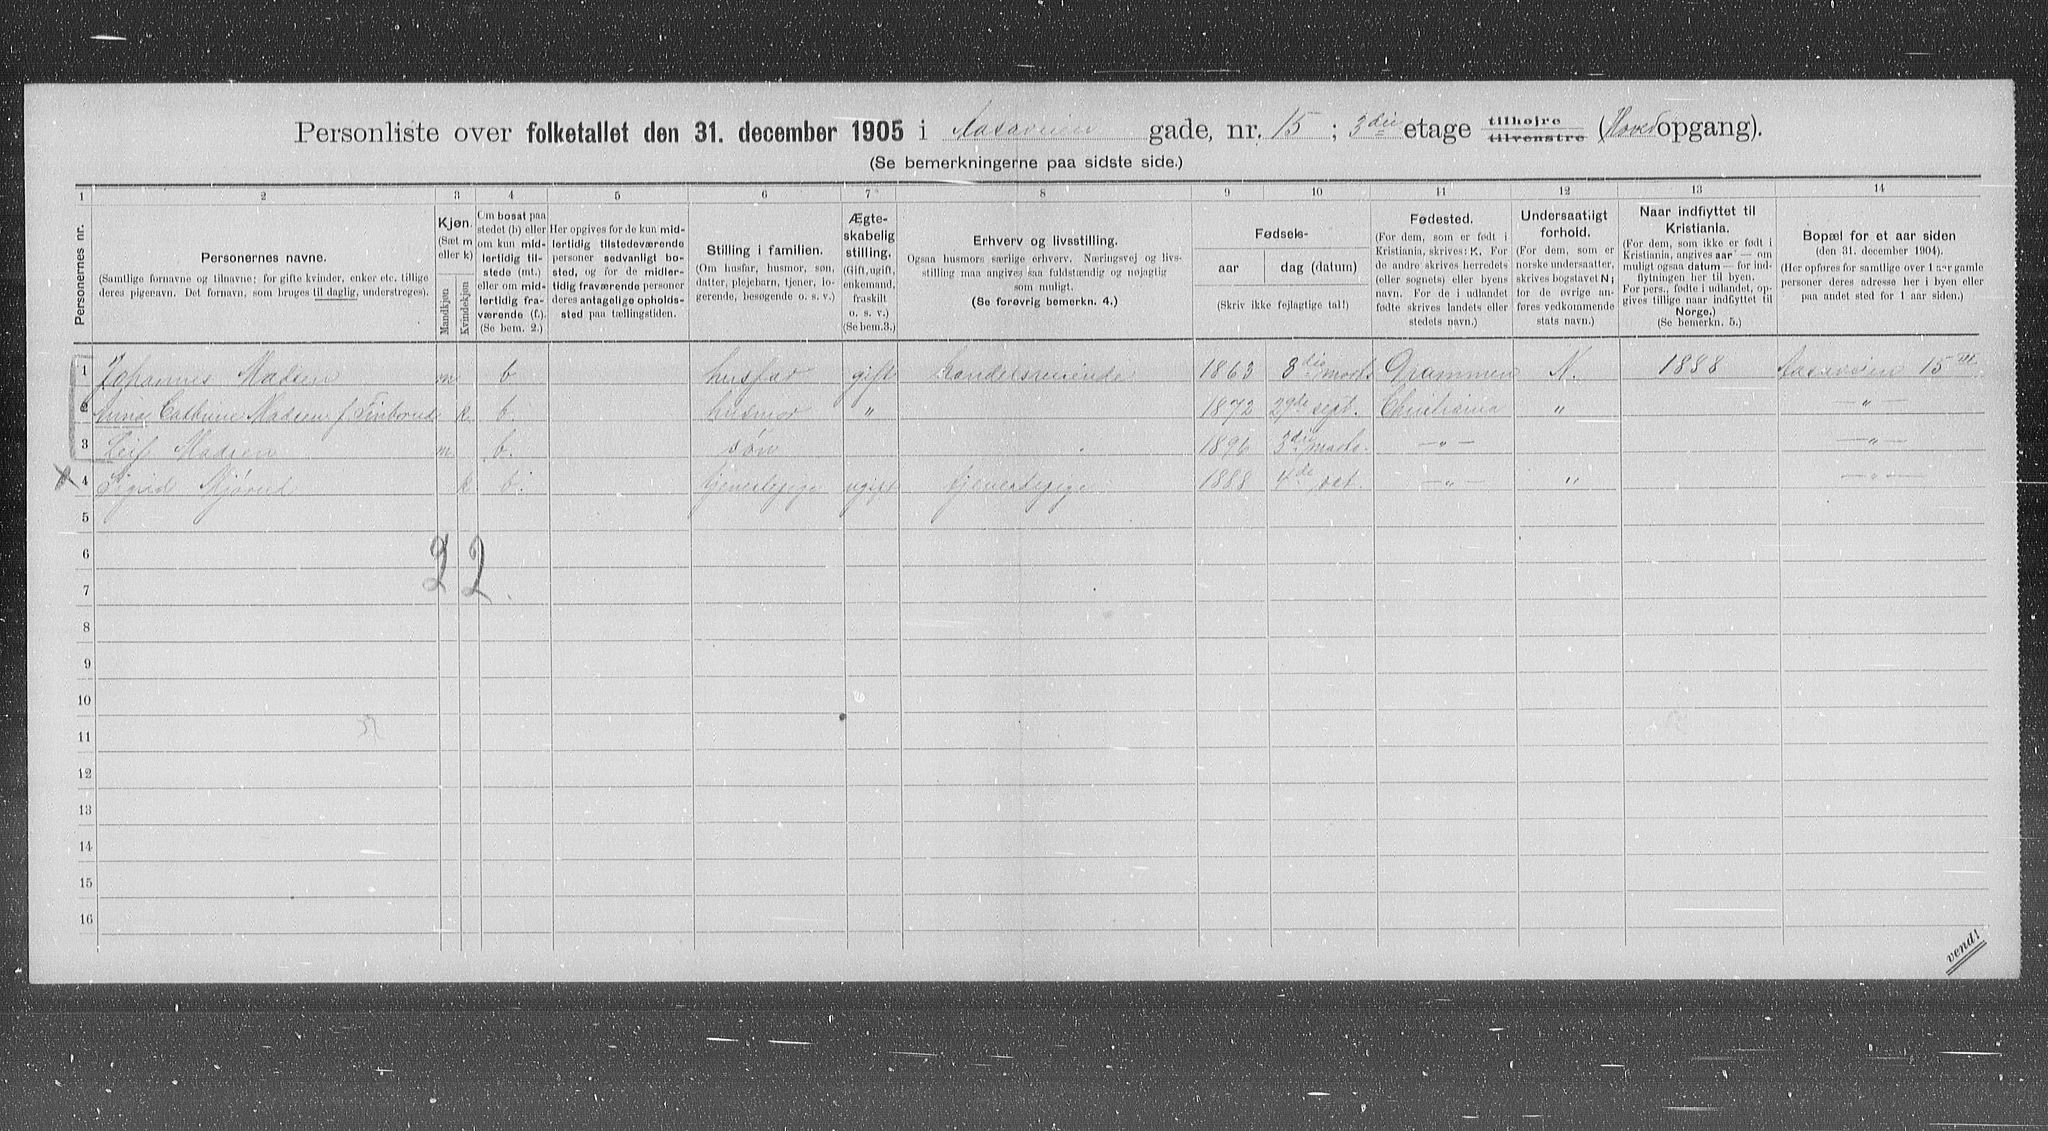 Personliste over folketallet den 31. december 1905 i Aasaveien gade, nr. 15 ; 3die etage tilhøjre tilvenstre (Hovedopgang).
(Se bemerkningerne paa sidste side.)
1 2 3 4 5 6 7 8 9 10 11 12 13 14
Personernes nr.
Personernes navne.
(Samtlige fornavne og tilnavne; for gifte kvinder, enker etc. tillige deres pigenavn. Det fornavn, som bruges til daglig, understreges).
Kjøn. (Sæt m eller k) Mandkjøn Kvindekjøn
Om bosat paa stedet (b) eller om kun midlertidig tilstede (mt.) eller om midlertidig fraværende (f.) (Se bem. 2.)
Her opgives for de kun midlertidig tilstedeværende personer sedvanligt bosted, og for de midlertidig fraværende personer deres antagelige opholdssted paa tællingstiden.
Stilling i familien.
(Om husfar, husmor, søn, datter, plejebarn, tjener, logerende, besøgende o. s. v.)
Ægteskabelig stilling.
(Gift, ugift, enkemand, fraskilt o. s. v.) (Se bem. 3.)
Erhverv og livsstilling.
Ogsaa husmors særlige erhverv. Næringsvej og livsstilling maa angives saa fuldstændig og nøjagtig som muligt.
(Se forøvrig bemerkn. 4.)
Fødsels-
aar dag (datum)
(Skriv ikke fejlagtige tal!)
Fødested.
(For dem, som er født i Kristiania, skrives: K. For de andre skrives herredets (eller sognets) eller byens navn. For de i udlandet fødte skrives landets eller stedets navn.)
Undersaatligt forhold.
(For dem, som er norske undersaatter, skrives bogstavet N; for de øvrige anføres vedkommende stats navn.)
Naar indflyttet til Kristiania.
(For dem, som ikke er født i Kristiania, angives aar — om muligt ogsaa datum — for indflytningen her til byen. For pers., fødte i udlandet, opgives tillige naar indflyttet til Norge.)
(Se bemerkn. 5.)
Bopæl for et aar siden
(den 31. december 1904).
(Her opføres for samtlige over 1 aar gamle personer deres adresse her i byen eller paa andet sted for 1 aar siden.)
1 Johannes Madsen m b husfar gift handelsreisende 1863 3die marts Drammen N. 1888 Aasaveien 15 III.
2 Anna Cathrine Madsen f. k b. husmor " 1872 29de sept. Christiania " — " —
3 Leif Madsen m b. søn 1896 3die marts. — " — — " —
x 4 Sigrid k b. tjenestepige ugift tjenestepige 1888 4de oct. — " — " — " —
5
6
2 2.
7
8
9
10
11
12
13
14
15
16
vend!